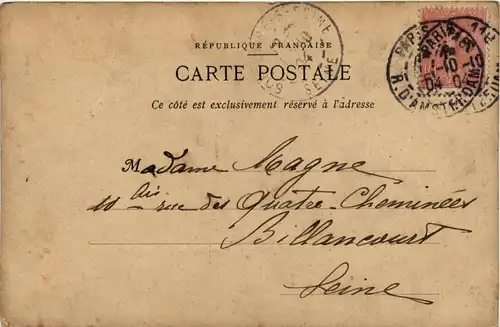 RÉPUBLIQUE FRANÇAISE
CARTE POSTALE
Ce côté est exclusivement réservé à l'adresse
Madame Magne
10 bis rue des Quatre-Cheminées
Billancourt
Seine
PARIS
R. D'AMSTERDAM
SEINE